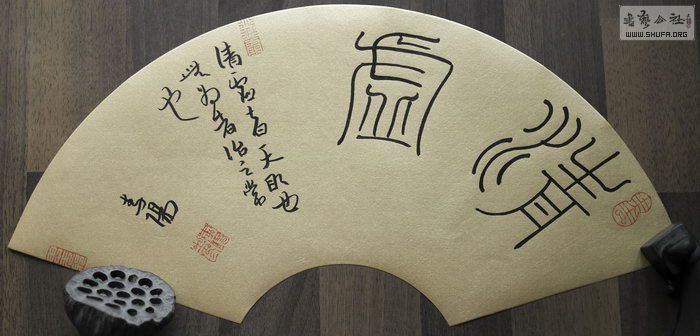 清虚
清虚者天明也
无为者治之常
也
書藝公社
WWW.SHUFA.ORG